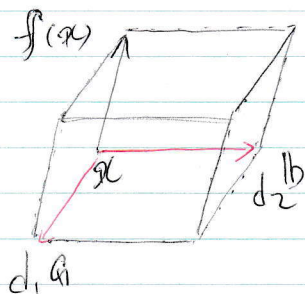 f(𝕩)
𝕩
d₂ 𝕓
d₁ 𝕒